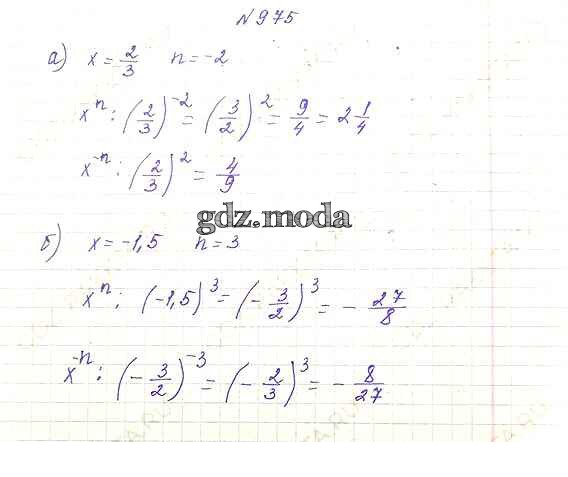 № 975
а) x = 2/3 n = -2
xⁿ : (2/3)⁻² = (3/2)² = 9/4 = 2 1/4
x⁻ⁿ : (2/3)² = 4/9
gdz.moda
б) x = -1,5 n = 3
xⁿ : (-1,5)³ = (-3/2)³ = -27/8
x⁻ⁿ : (-3/2)⁻³ = (-2/3)³ = -8/27